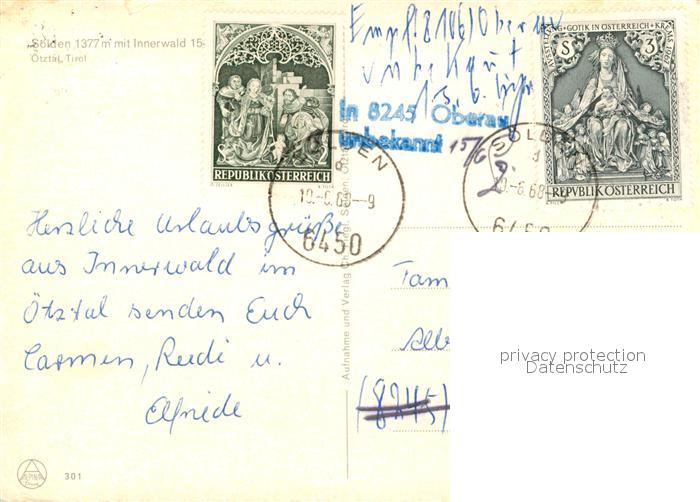 „Sölden 1377 m mit Innerwald 15
Ötztal, Tirol
REPUBLIK ÖSTERREICH
GOTIK IN ÖSTERREICH
S 3
REPUBLIK ÖSTERREICH
Empf. 8106 Oberau
unbekannt
In 8245 Oberau
unbekannt
15/6
SÖLDEN
10.-6.68--9
6450
SÖLDEN
10.-6.68--9
6450
Herzliche Urlaubsgrüße
aus Innerwald im
Ötztal senden Euch
Carmen, Rudi u.
Elfriede
Aufnahme und Verlag
Fam
(8245)
privacy protection
Datenschutz
301